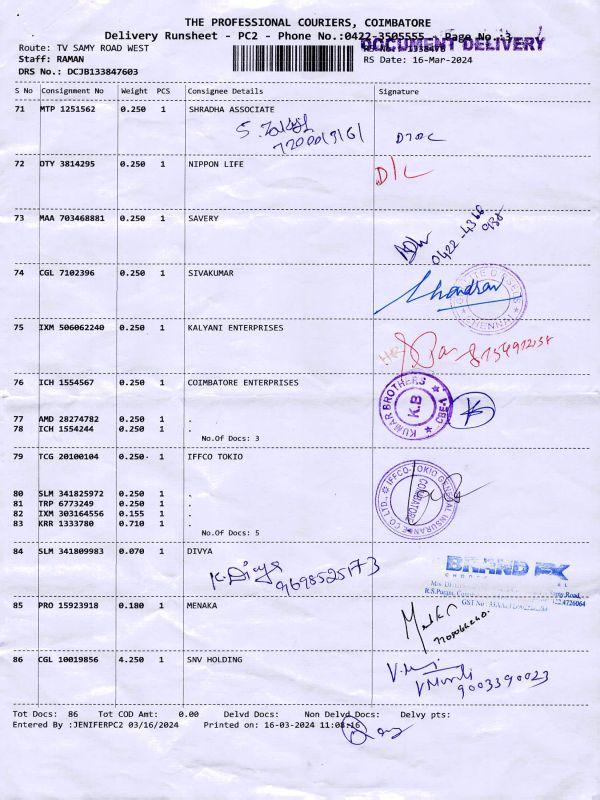 THE PROFESSIONAL COURIERS, COIMBATORE
Delivery Runsheet - PC2 - Phone No.:0422-3505555 - Page No.:3
DOCUMENT DELIVERY
Route: TV SAMY ROAD WEST
Staff: RAMAN RS Date: 16-Mar-2024
DRS No.: DCJB133847603
S No Consignment No Weight PCS Consignee Details Signature
71 MTP 1251562 0.250 1 SHRADHA ASSOCIATE
72 DTY 3814295 0.250 1 NIPPON LIFE
D/C
73 MAA 703468881 0.250 1 SAVERY
0422-4366
74 CGL 7102396 0.250 1 SIVAKUMAR
CHENNAI
75 IXM 506062240 0.250 1 KALYANI ENTERPRISES
76 ICH 1554567 0.250 1 COIMBATORE ENTERPRISES
KUMAR BROTHERS
K.B
CBE-1
K
77 AMD 28274782 0.250 1 .
78 ICH 1554244 0.250 1 .
No.Of Docs: 3
79 TCG 20100104 0.250 1 IFFCO TOKIO
IFFCO-TOKIO GENERAL INSURANCE CO LTD.,
COIMBATORE
80 SLM 341825972 0.250 1 .
81 TRP 6773249 0.250 1 .
82 IXM 303164556 0.155 1 .
83 KRR 1333780 0.710 1 .
No.Of Docs: 5
84 SLM 341809983 0.070 1 DIVYA
K. Divya
9698525173
BRAND EX
R.S.Puram,
85 PRO 15923918 0.180 1 MENAKA
86 CGL 10019856 4.250 1 SNV HOLDING
9003390023
Tot Docs: 86 Tot COD Amt: 0.00 Delvd Docs: Non Delvd Docs: Delvy pts:
Entered By :JENIFERPC2 03/16/2024 Printed on: 16-03-2024 11:08:16